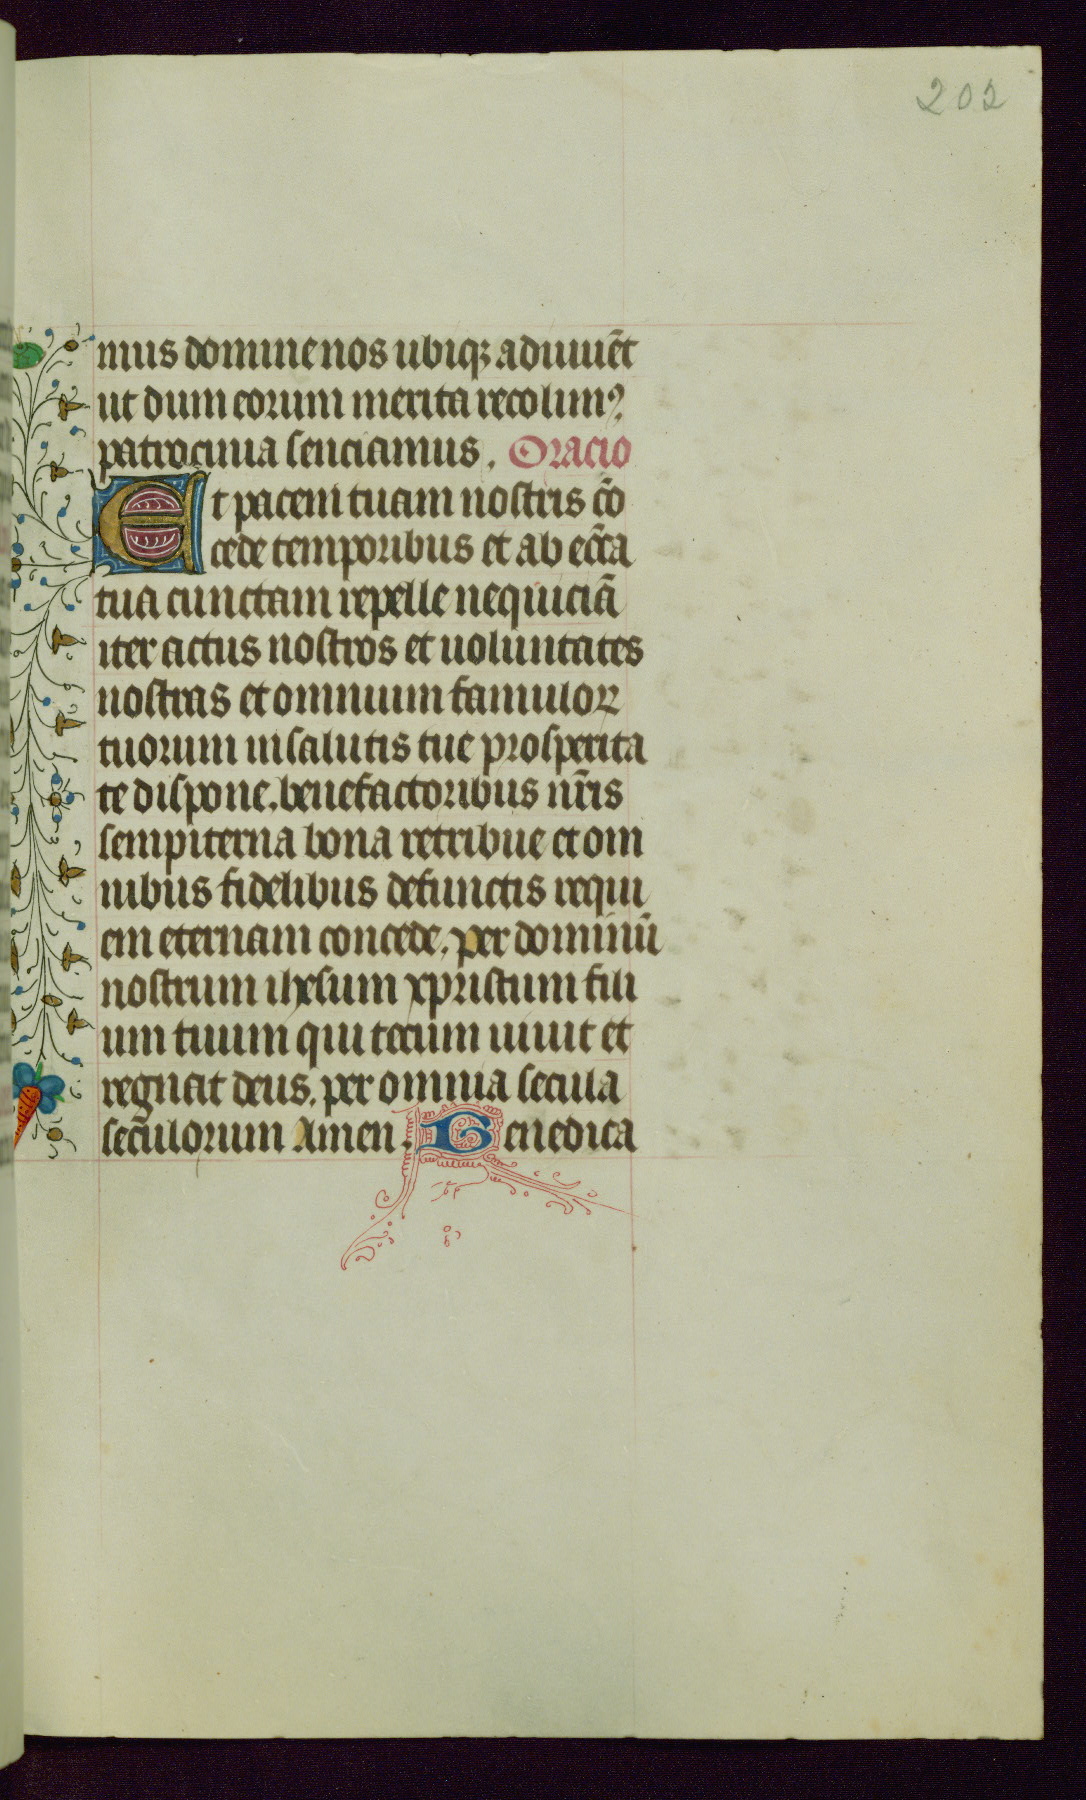 202
mus domine nos ubiqꝫ adiuuēt
ut dum eorum merita recolimꝰ
patrocinia senciamus. Oracio
Et pacem tuam nostris cō
cede temporibus et ab ecc̄a
tua cunctam repelle nequiciā
iter actus nostros et uoluntates
nostras et omnium famuloꝝ
tuorum in salutis tue prosperita
te dispone. benefactoribus nr̄is
sempiterna bona retribue et om
nibus fidelibus defunctis requi
em eternam concede. per dominū
nostrum ihesum xpristum fili
um tuum qui tecum uiuit et
regnat deus. per omnia secula
seculorum Amen. Benedica